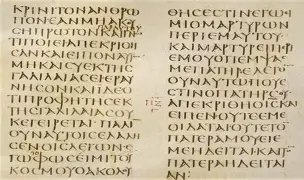 ΚΡΙΝΙΤΟΝΑΝΘΡΩ
ΠΟΝΕΑΝΜΗΑΚΟΥ
ϹΗΠΡΩΤΟΝ
ΤΙΠΟΙΕΙΑΠΕΚΡΙΘΗ
ϹΑΝΚΑΙΕΙΠΟΝΑΥΤΩ
ΜΗΚΑΙϹΥΕΚΤΗϹ
ΓΑΛΙΛΑΙΑϹΕΙΕΡΑΥ
ΝΗϹΟΝΚΑΙΙΔΕΟ
ΤΙΠΡΟΦΗΤΗϹΕΚ
ΤΗϹΓΑΛΙΛΑΙΑϹΟΥ
ΚΕΓΕΙΡΕΤΑΙΠΑΛΙ
ΟΥΝΑΥΤΟΙϹΕΛΑΛΗ
ϹΕΝΟΙϹΛΕΓΩΝΕ
ΓΩΦΩϹΕΙΜΙΤΟΥ
ΚΟϹΜΟΥΟΑΚΟΛΟΥ
ΘΗϹΕϹΤΙΝΕΓΩΗ
ΜΙΟΜΑΡΤΥΡΩΝ
ΠΕΡΙΕΜΑΥΤΟΥ
ΚΑΙΜΑΡΤΥΡΕΙΠΕΡΙ
ΕΜΟΥΟΠΕΜΨΑϹ
ΜΕΠΑΤΗΡΕΛΕΓΟ
ΟΥΝΑΥΤΩΠΟΥΕ
ϹΤΙΝΟΠΑΤΗΡϹΟΥ
ΑΠΕΚΡΙΘΗΟΙϹΚΑΙ
ΕΙΠΕΝΟΥΤΕΕΜΕ
ΟΙΔΑΤΑΙΟΥΤΕΤΟ
ΠΑΤΕΡΑΜΟΥΕΙΕ
ΜΕΗΔΕΙΤΑΙΚΑΙΤΟ
ΠΑΤΕΡΑΗΔΕΙΤΑΙ
ΑΝ